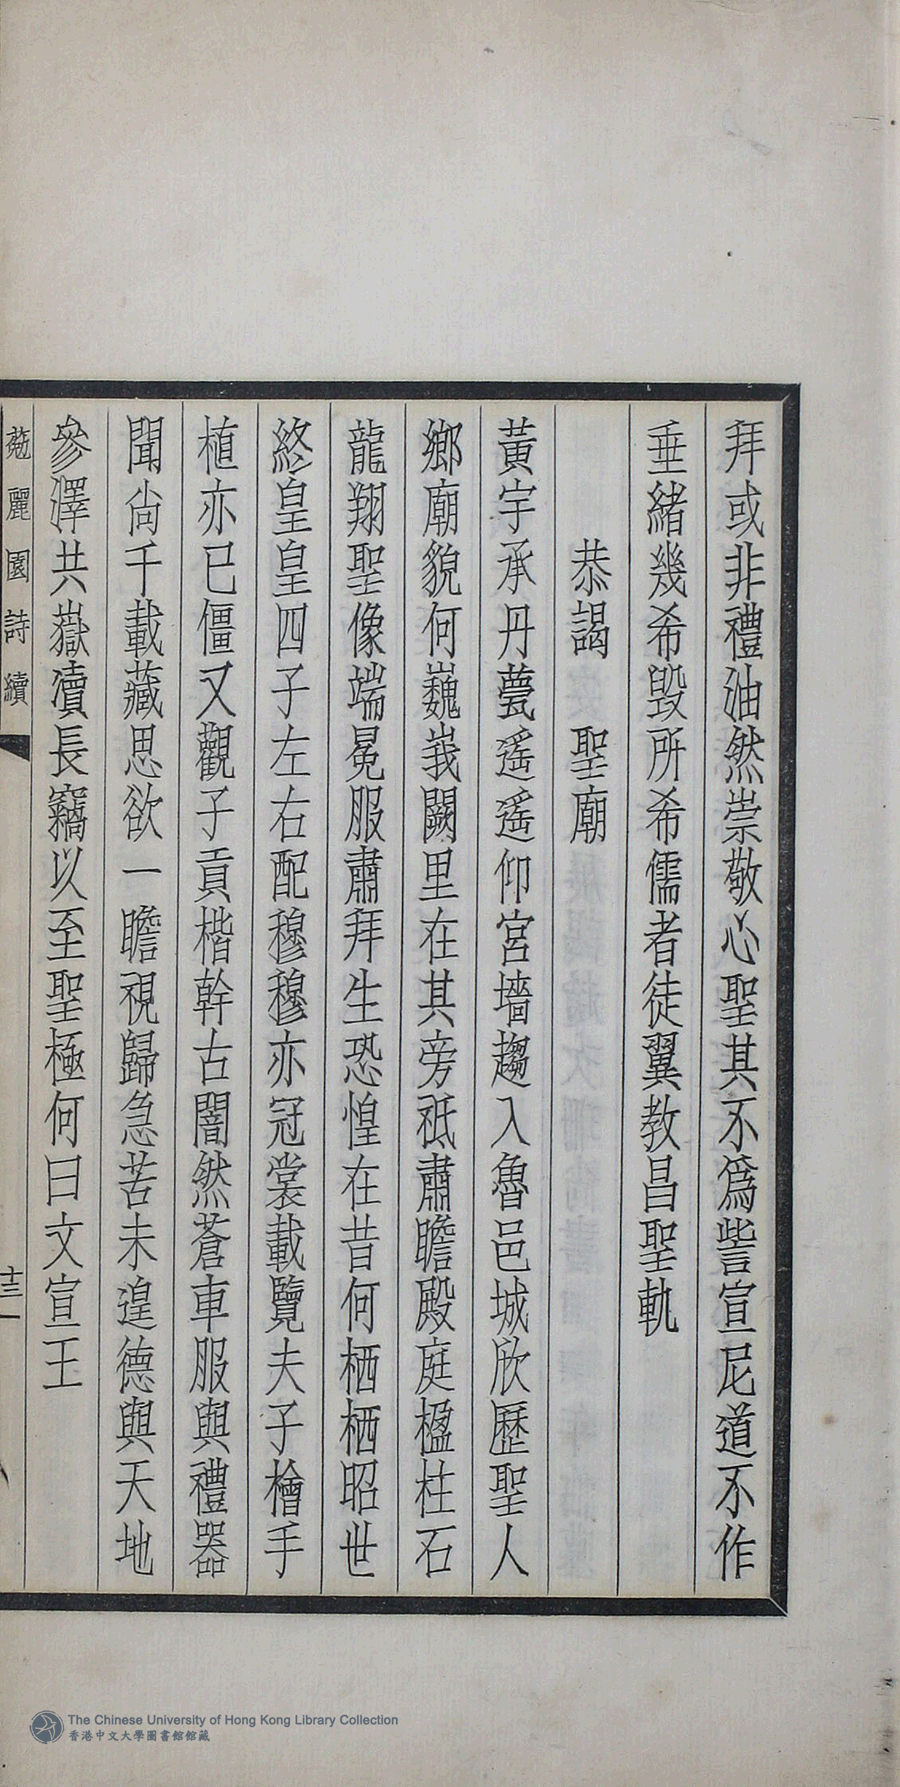 拜或非禮油然崇敬心聖其不爲訾宣尼道不作
垂緒幾希毀所希儒者徒翼教昌聖軌
恭謁　聖廟
黃宇承丹甍遙遙仰宮墻趨入魯邑城欣歷聖人
鄉廟貌何巍峩闕里在其旁祗肅瞻殿庭楹柱石
龍翔聖像端冕服肅拜生恐惶在昔何栖栖昭世
終皇皇四子左右配穆穆亦冠裳載覽夫子檜手
植亦已僵又觀子貢楷幹古闇然蒼車服與禮器
聞尙千載藏思欲一瞻視歸急苦未遑德與天地
參澤共嶽瀆長竊以至聖極何曰文宣王
麗園詩續
十三
The Chinese University of Hong Kong Library Collection
香港中文大學圖書館館藏